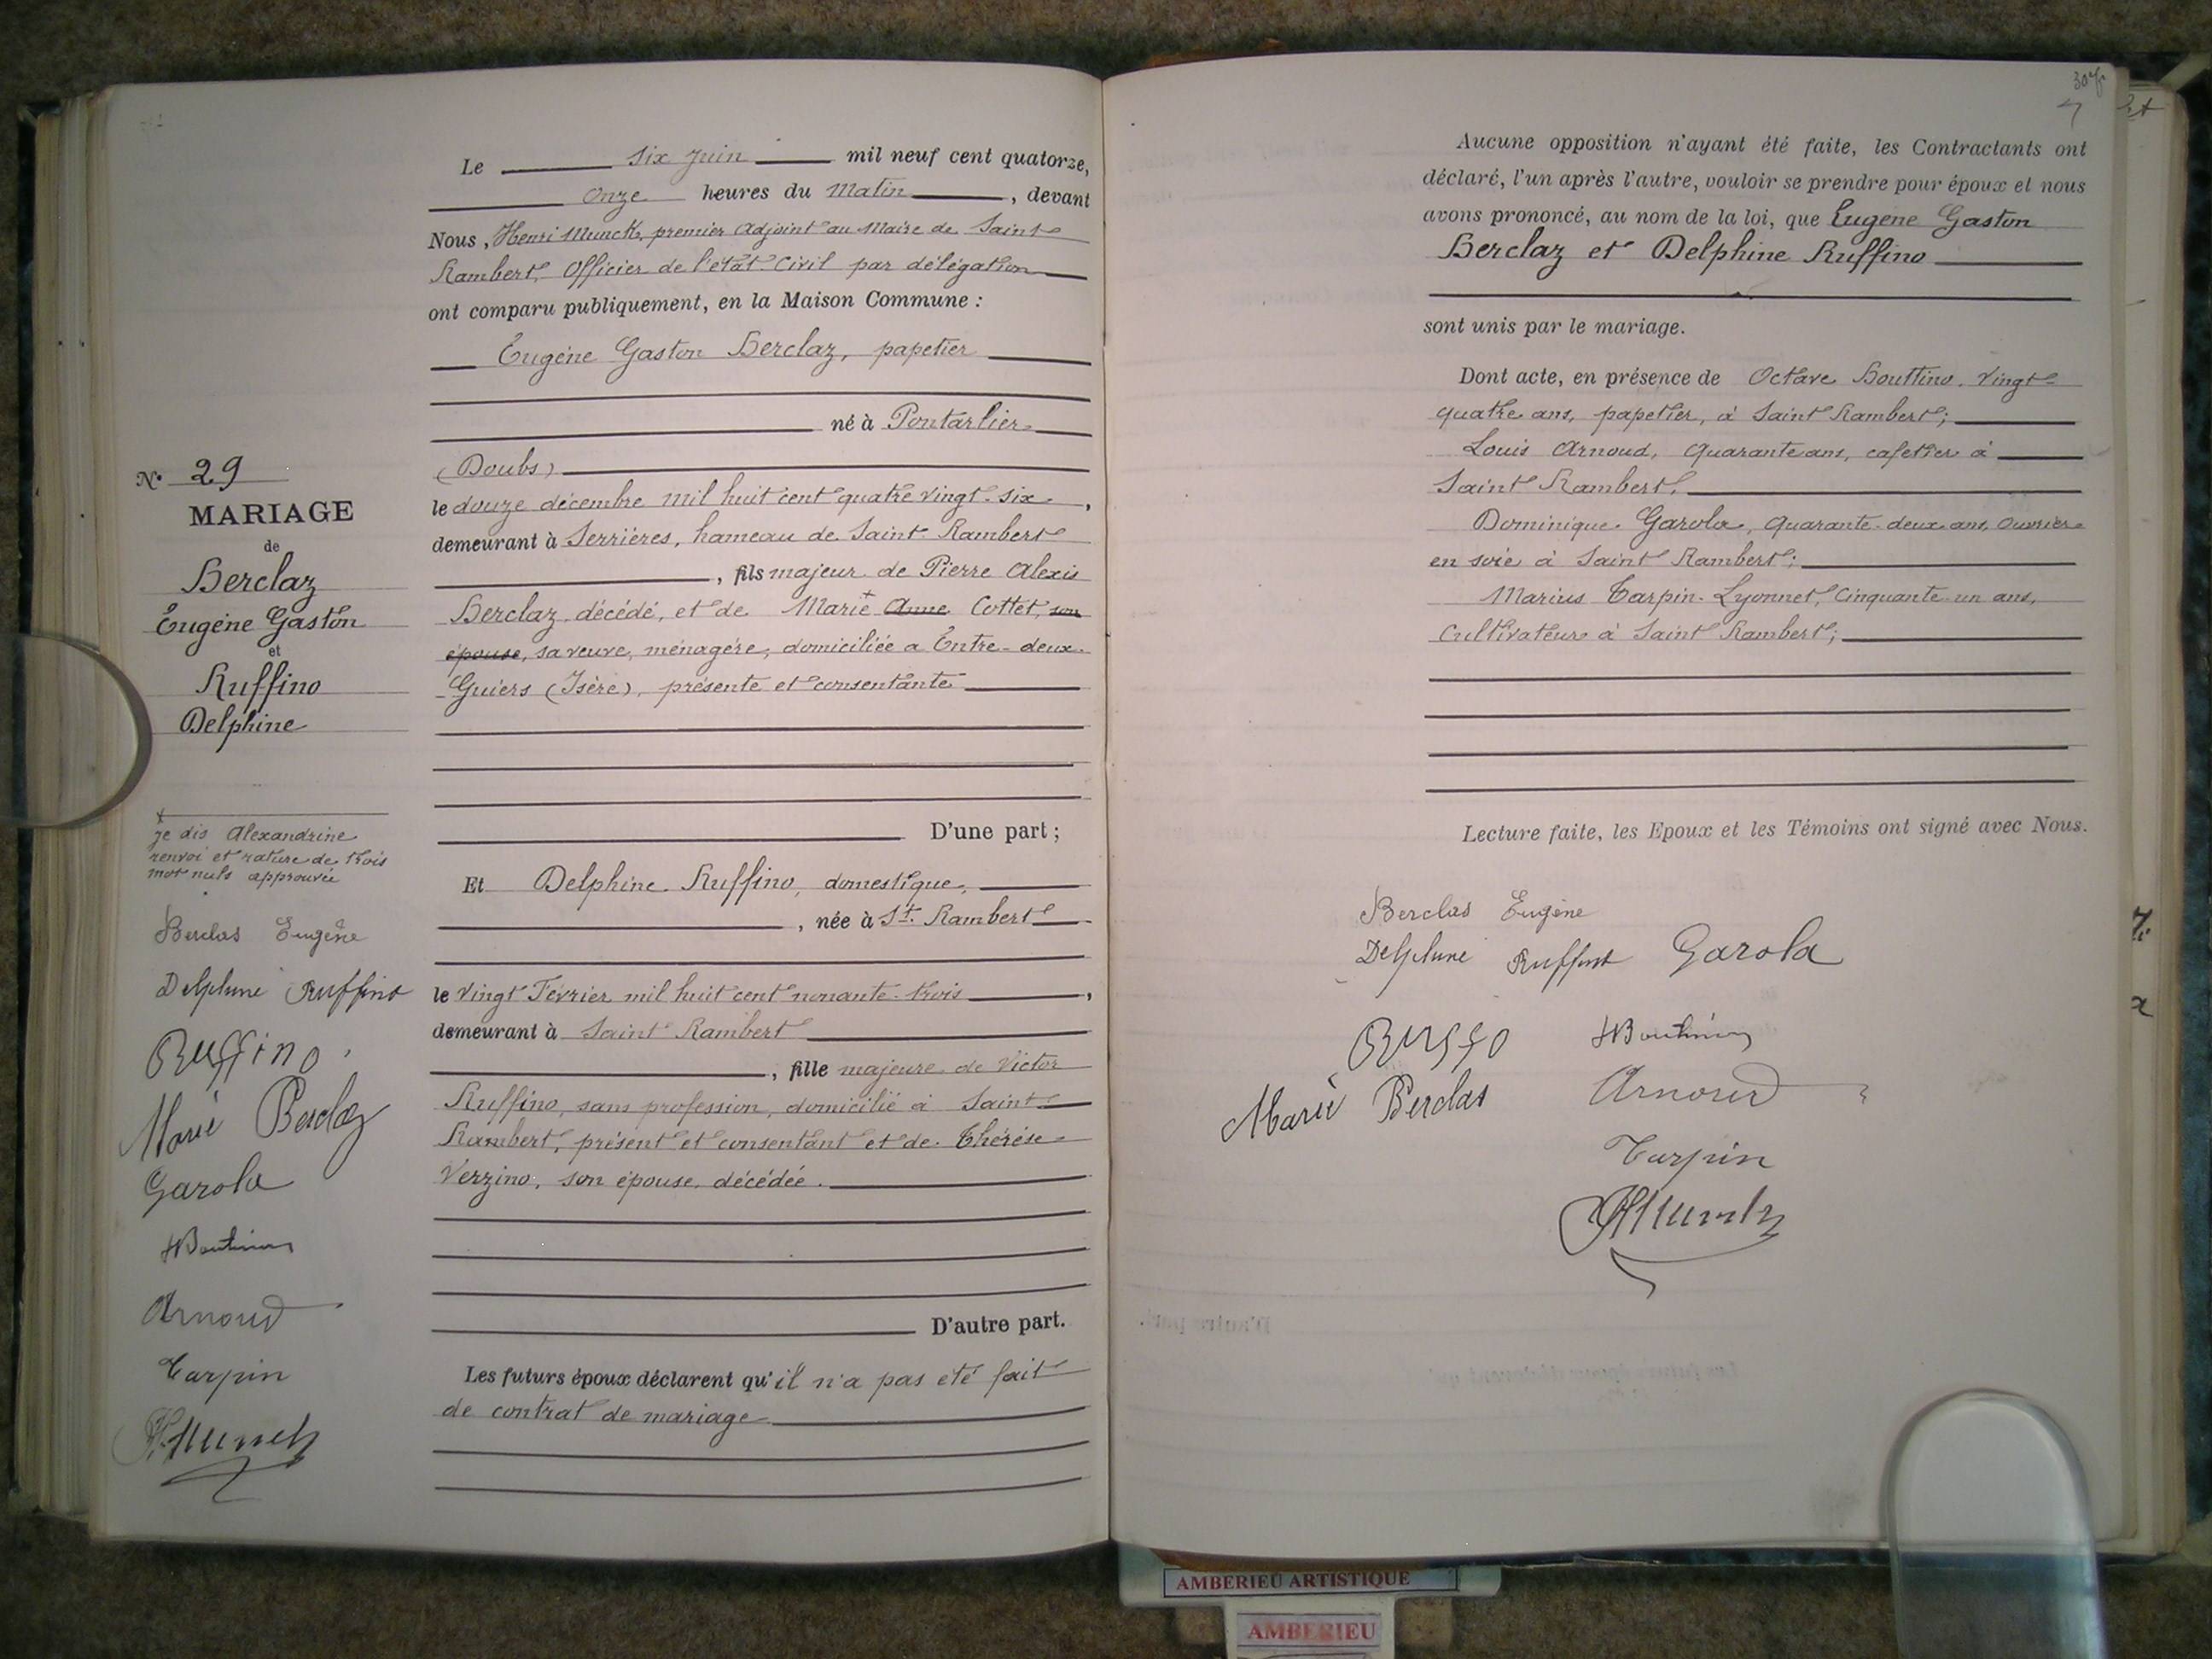 N° 29
MARIAGE
de
Berclaz
Eugène Gaston
et
Ruffino
Delphine
je dis Alexandrine
renvoi et rature de trois
mot nuls approuvée
Berclas Eugène
Delphine Ruffino
Ruffino
Marie Berclaz
Garola
Arnoud
Tarpin
HMunch
Le six juin mil neuf cent quatorze,
onze heures du matin, devant
Nous, Henri Munck, premier adjoint au Maire de Saint
Rambert, Officier de l'état Civil par délégation
ont comparu publiquement, en la Maison Commune :
Eugène Gaston Berclaz, papetier
né à Pontarlier
(Doubs)
le douze décembre mil huit cent quatre vingt-six,
demeurant à Serrières, hameau de Saint Rambert
, fils majeur de Pierre Alexis
Berclaz, décédé, et de Marie + Anne Cottet, son
épouse, sa veuve, ménagère, domiciliée a Entre-deux-
Guiers (Isère), présente et consentante
D'une part ;
Et Delphine Ruffino, domestique,
, née à St. Rambert
le vingt Février mil huit cent nonante-trois,
demeurant à Saint Rambert
, fille majeure de Victor
Ruffino, sans profession, domicilié à Saint
Rambert, présent et consentant et de Thérèse
Verzino, son épouse, décédée.
D'autre part.
Les futurs époux déclarent qu'il n'a pas été fait
de contrat de mariage
Aucune opposition n'ayant été faite, les Contractants ont
déclaré, l'un après l'autre, vouloir se prendre pour époux et nous
avons prononcé, au nom de la loi, que Eugène Gaston
Berclaz et Delphine Ruffino
sont unis par le mariage.
Dont acte, en présence de Octave Bouttino, vingt-
quatre ans, papetier, à Saint Rambert;
Louis Arnoud, quarante ans, cafetier à
Saint Rambert,
Dominique Garola, quarante-deux ans, ouvrier
en soie à Saint Rambert;
Marius Tarpin-Lyonnet, cinquante-un ans,
cultivateur à Saint Rambert;
Lecture faite, les Epoux et les Témoins ont signé avec Nous.
Berclas Eugène
Delphine Ruffino Garola
Marie Berclas
Arnoud
Tarpin
HMunch
AMBERIEU ARTISTIQUE
AMBERIEU